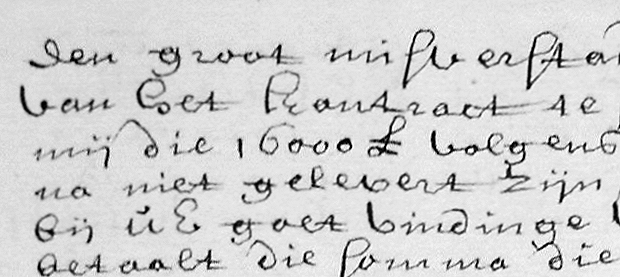 den groot misversta
van het kantract te
mij die 16000 £ volgens
na niet gelevert zijn
bij UE goet bindinge
betaalt die somma die